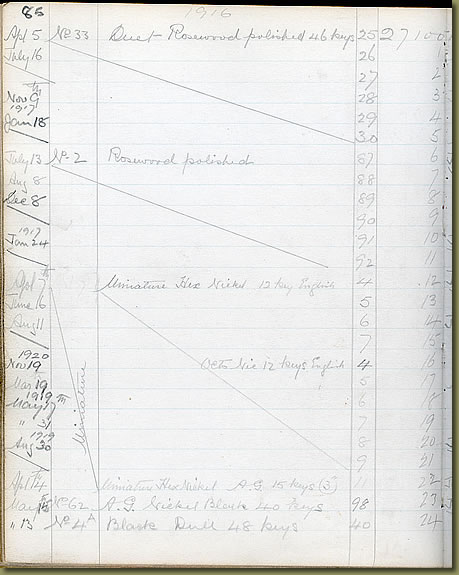 85 1916
Apl 5 No 33 Duet Rosewood polished 46 keys 25 27100
July 16 26 1
27 2
Nov 9th 28 3
1917
Jan 18 29 4
30 5
July 13 No 2 Rosewood polished 87 6
Aug 8 88 7
Dec 8 89 8
90 9
1917
Jan 24 91 10
92 11
Apl 7th Miniature Hex Nickel 12 key English 4 12
June 16 5 13
Aug 11 6 14
7 15
1920
Nov 19 Octo Nic 12 keys English 4 16
Mar 19 5 17
1919
May 17th 6 18
" 31 7 19
1919
Aug 30 8 20
Miniature
9 21
Apl 14 Miniature Hex Nickel A.G. 15 keys (3) 11 22
May No 62 A.G. Nickel Black 40 keys 98 23
" 13 No 4A Black Dull 48 keys 40 24